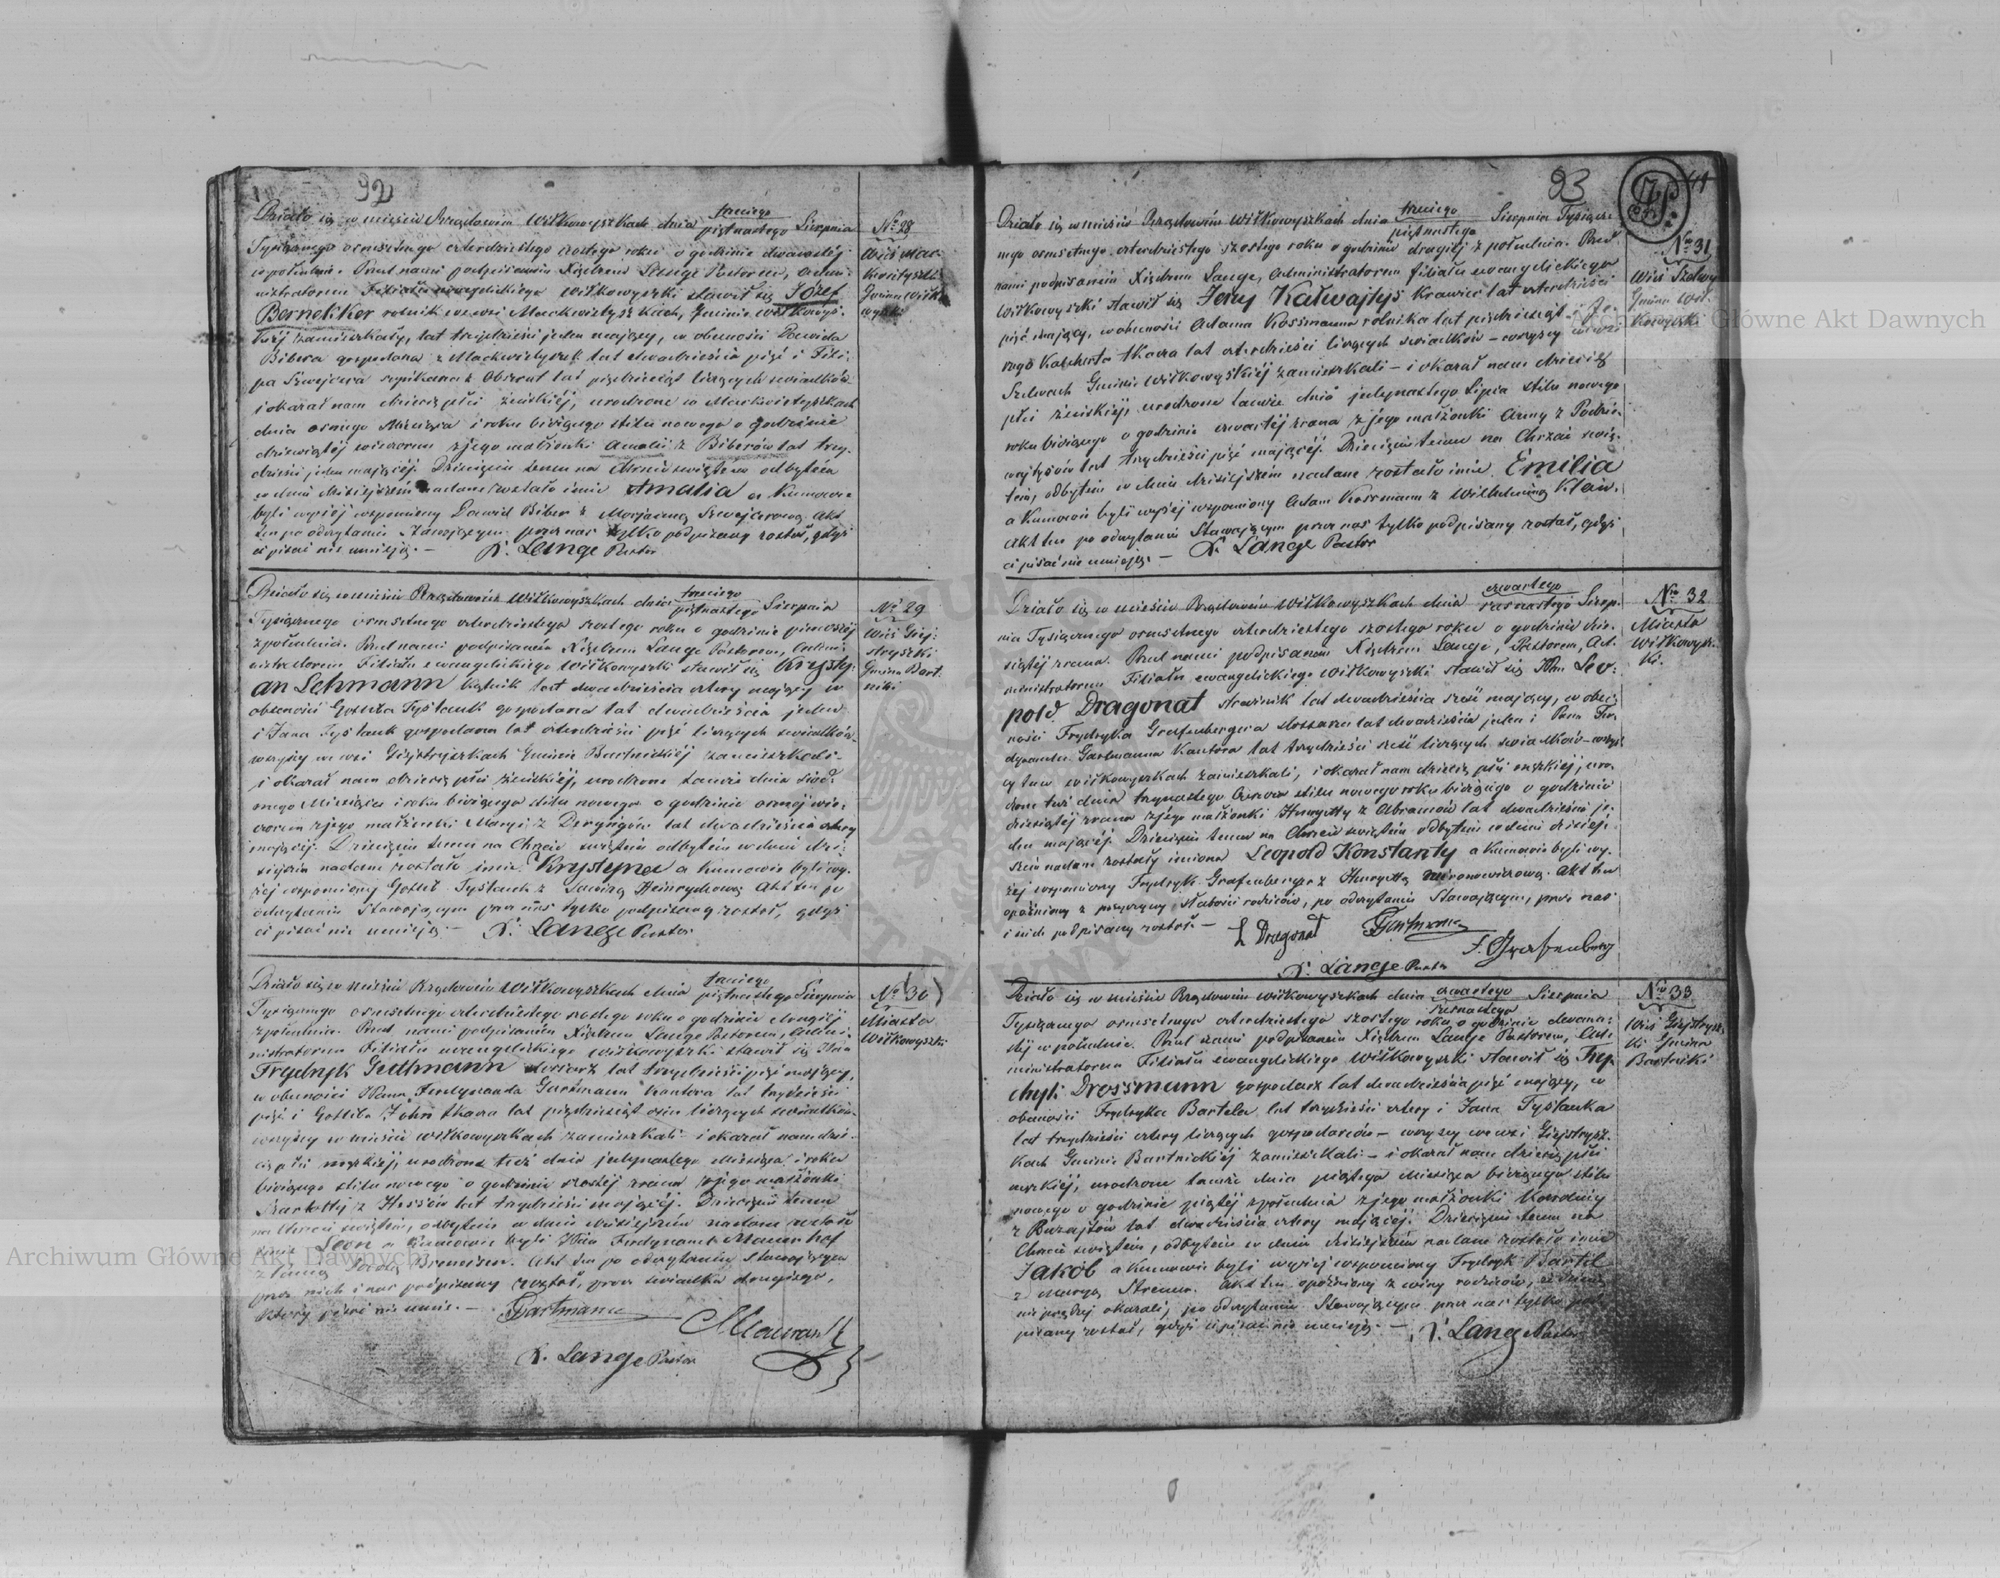 92
Działo się w mieście Rządowém Wiłkowyszkach dnia trzeciego / piętnastego Sierpnia
Tysiącznego ośmsetnego czterdziestego szóstego roku o godzinie dwunastéj
w południe. Przed nami podpisanem Xiędzem Lange Pastorem, Admi-
nistratorem Filiału ewangelickiego Wiłkowyszki stawił się Józef
Berneliker rolnik we wsi Mackwietyszkach, Gminie Wiłkowys-
kiéj zamieszkały, lat trzydzieści jeden mający, w obecności Dawida
Bibera gospodarza z Mackwietyszk lat dwadzieścia pięć i Fili-
pa Szwejcera z Obszrut lat pięćdziesiąt liczących świadków
i okazał nam dziecię płci żeńskiéj, urodzone w Mackwietyszkach
dnia ósmego Miesiąca i roku bieżącego stilu nowego o godzinie
dziewiątéj wieczorem z jego małżonki Amalii z Biberów lat trzy-
dzieści jeden mającéj. Dziecięciu temu na Chrzcie świętem odbytem
w dniu dzisiejszém nadane zostało imie Amalia a Kumowie
byli wyżéj wspomniony Dawid Biber z Maryanną Szwejcerową. Akt
ten po odczytaniu Stawającym przez nas tylko podpisany został, gdyż
ci pisać nie umieją. — X. Lange Pastor
No 28
Wieś Mac-
kwietyszki
Gmina Wiłko-
wyszki
Działo się w mieście Rządowém Wiłkowyszkach dnia trzeciego / piętnastego Sierpnia
Tysiącznego ośmsetnego czterdziestego szóstego roku o godzinie pierwszéj
z południa. Przed nami podpisanem Xiędzem Lange Pastorem, Admi-
nistratorem Filiału ewangelickiego Wiłkowyszki stawił się Krysty-
an Lehmann kątnik lat dwadzieścia cztery mający w
obecności Gotliba Tyslauk gospodarza lat dwadzieścia jeden
i Jana Tyslauk gospodarza lat czterdzieści pięć liczących świadków—
wszyscy we wsi Giejstryszkach Gminie Bartnickiéj zamieszkali—
i okazał nam dziecię płci żeńskiéj, urodzone tamże dnia siód-
mego Miesiąca i roku bieżącego stilu nowego o godzinie ósméj wie-
czorem z jego małżonki Maryi z Deryngów lat dwadzieścia cztery
mającéj. Dziecięciu temu na Chrzcie świętem odbytem w dniu dzi-
siejszém nadane zostało imie Krystyna a kumowie byli wy-
żéj wspomniony Gotlib Tyslauk z Luwizą Heinrychową Akt ten po
odczytaniu Stawającym przez nas tylko podpisany został, gdyż
ci pisać nie umieją. — X. Lange Pastor
No 29
Wieś Giej-
stryszki
Gmina Bart-
niki
Działo się w mieście Rządowém Wiłkowyszkach dnia trzeciego / piętnastego Sierpnia
Tysiącznego ośmsetnego czterdziestego szóstego roku o godzinie drugiéj
z południa. Przed nami podpisanem Xiędzem Lange Pastorem, Admi-
nistratorem Filiału ewangelickiego Wiłkowyszki stawił się Pan
Frydryk Gutmann lat trzydzieści pięć mający,
w obecności Pana Ferdynanda Gartmann Kantora lat trzydzieści
pięć i Gotliba John tkacza lat pięćdziesiąt ośm liczących świadków
wszyscy w mieście Wiłkowyszkach zamieszkali i okazał nam dzie-
cię płci męzkiéj, urodzone też dnia jedynastego Miesiąca i roku
bieżącego stilu nowego o godzinie szóstéj zrana z jego małżonki
Karlotty z Hessów lat trzydzieści mającéj. Dziecięciu temu
na Chrzcie świętém, odbytém w dniu dzisiejszém nadane zostało
imie Leon a kumowie byli Pan Ferdynand
z Panną Bremsen. Akt ten po odczytaniu Stawającym
przez nich i nas podpisany został, prócz świadka drugiego,
który pisać nie umie. — Gartmann
X. Lange Pastor
No 30
Miasto
Wiłkowyszki
93
Działo się w mieście Rządowém Wiłkowyszkach dnia trzeciego / piętnastego Sierpnia Tysiącz-
nego ośmsetnego czterdziestego szóstego roku o godzinie drugiéj z południa. Przed
nami podpisanem Xiędzem Lange, Administratorem filiału ewangelickiego
Wiłkowyszki stawił się Jerzy Kałwajtys Krawiec lat czterdzieści
pięć mający, w obecności Adama Kossmanna rolnika lat pięćdziesiąt i Je-
rzego tkacza lat czterdzieści liczących świadków — wszyscy we wsi
Szelwach Gminie Wiłkowyskiéj zamieszkali — i okazał nam dziecię
płci żeńskiéj, urodzone tamże dnia jedynastego Lipca stilu nowego
roku bieżącego o godzinie czwartéj zrana z jego małżonki Anny z Podzie-
wajtysów lat trzydzieści pięć mającéj. Dziecięciu temu na Chrzcie świę-
tém, odbytém w dniu dzisiejszém nadane zostało imie Emilia
a Kumowie byli wyżéj wspomniony Adam Kossmann z Wilhelminą Klein.
Akt ten po odczytaniu Stawającym przez nas tylko podpisany został, gdyż
ci pisać nie umieją. — X. Lange Pastor
No 31
Wieś Szelwy
Gmina Wił-
kowyszki
Działo się w mieście Rządowém Wiłkowyszkach dnia czwartego / szesnastego Sierp-
nia Tysiącznego ośmsetnego czterdziestego szóstego roku o godzinie dzie-
siątéj zrana. Przed nami podpisanem Xiędzem Lange, Pastorem, Ad-
ministratorem Filiału ewangelickiego Wiłkowyszki stawił się Pan Leo-
pold Dragonat strażnik lat dwadzieścia sześć mający, w obec-
ności Frydryka Grafenbergera lat dwadzieścia jeden i Pana Fer-
dynanda Gartmanna Kantora lat trzydzieści sześć liczących świadków — wszys-
cy tu w Wiłkowyszkach zamieszkali, i okazał nam dziecię płci męzkiéj, uro-
dzone też dnia trzynastego Czerwca stilu nowego roku bieżącego o godzinie
dziesiątéj zrana z jego małżonki Henrjetty z Abramów lat dwadzieścia je-
den mającéj. Dziecięciu temu na Chrzcie świętem odbytem w dniu dzisiej-
szém nadane zostały imiona Leopold Konstanty a Kumowie byli wy-
żéj wspomniony Frydryk Grafenberger z Henrjettą Akt ten
opóźniony z przyczyny słabości rodziców, po odczytaniu Stawającym, przez nas
i nich podpisany został. — L Dragonat Gartmann
F. Grafenberg
X. Lange Pastor
No 32
Miasto
Wiłkowysz-
ki.
Działo się w mieście Rządowém Wiłkowyszkach dnia czwartego / szesnastego Sierpnia
Tysiącznego ośmsetnego czterdziestego szóstego roku o godzinie dwuna-
stéj w południe. Przed nami podpisanem Xiędzem Lange Pastorem, Ad-
ministratorem Filiału ewangelickiego Wiłkowyszki stawił się Fry-
dryk Drossmann gospodarz lat dwadzieścia pięć mający, w
obecności Frydryka Bartela lat trzydzieści cztery i Jana Tyslauka
lat trzydzieści cztery liczących gospodarzów — wszyscy we wsi Giejstrysz-
kach Gminie Bartnickiéj zamieszkali — i okazał nam dziecię płci
męzkiéj, urodzone tamże dnia piątego miesiąca bieżącego stilu
nowego o godzinie piątéj z południa z jego małżonki Karoliny
z Buzajtów lat dwadzieścia cztery mającéj. Dziecięciu temu na
Chrzcie świętém, odbytém w dniu dzisiejszém nadane zostało imie
Jakób a Kumowie byli wyżéj wspomniony Frydryk Bartel
z Maryą Akt ten opóźniony z winy rodziców,
nie prędzéj okazali, po odczytaniu Stawającym przez nas tylko pod-
pisany został, gdyż ci pisać nie umieją. — X. Lange Pastor
No 33
Wieś Giejstrysz-
ki Gmina
Bartniki
Archiwum Główne Akt Dawnych
Archiwum Główne Akt Dawnych